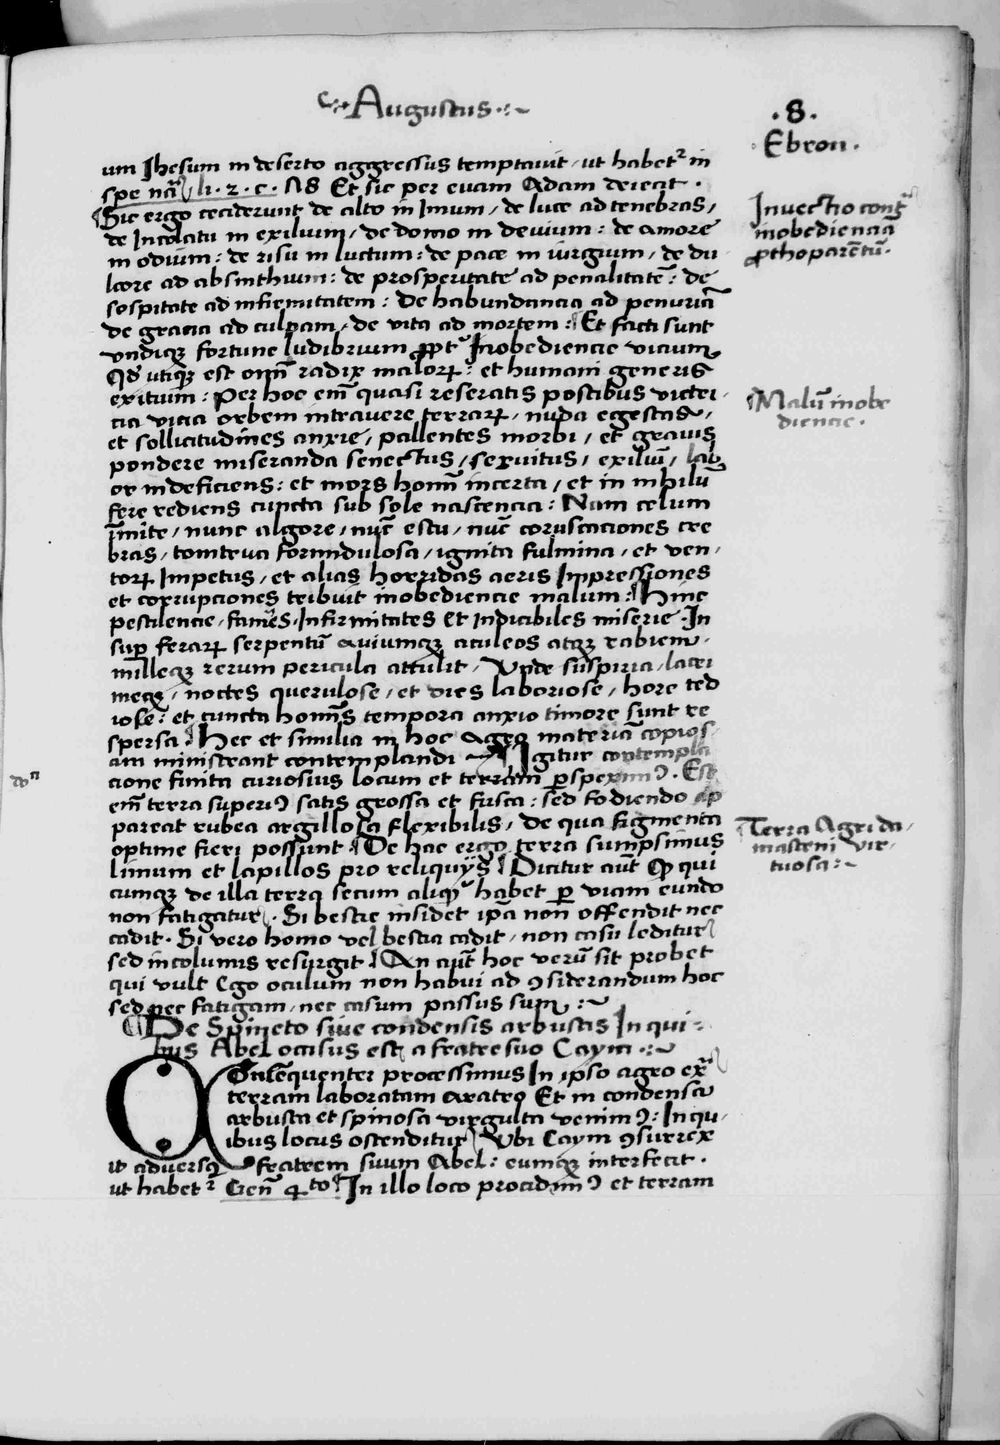 Augustus
.8.
Ebron.
um Jhesum in deserto aggressus temptauit, ut habetr in
spe nāli li. 2. c. 18 Et sic per euam Adam deiecit.
Sic ergo ceciderunt de alto in Imum, de luce ad tenebras,
de Incolatu in exilium, de domo in deuium: de amore
in odium: de risu in luctum: de pace in iurgium, de du
lcore ad absinthium: de prosperitate ad penalitatē: de
sospitate ad infirmitatem: de habundancia ad penuriā
de gracia ad culpam, de vita ad mortem: Et facti sunt
vndiqꝫ fortune ludibrium ꝓpt Inobediencie vicium
Qd utiqꝫ est omī radix maloꝝ: et humani generis
exitium: Per hoc em̄ quasi reseratis postibus victri
cia vicia orbem intrauere terraꝝ, nuda egestas,
et sollicitudines anxie, pallentes morbi, et grauis
pondere miseranda senectus, seruitus, exiliū, lab
or indeficiens: et mors homī incerta, et in nihilū
fere rediens cuncta sub sole nascencia: Nam celum
īmite, nunc algore, nūc estu, nūc coruscaciones cre
bras, tonitrua formidulosa, ignita fulmina, et ven,
toꝝ Impetus, et alias horridas aeris Impressiones
et corrupciones tribuit inobediencie malum: Hinc
pestilencie, fames, Infirmitates Et Indicibiles miserie. In
suꝑ feraꝝ serpentū auiumqꝫ aculeos atqꝫ rabiem.
milleqꝫ rerum pericula attulit, Vnde suspiria, lacri
meqꝫ, noctes querulose, et dies laboriose, hore ted
iose: et cuncta homīs tempora anxio timore sunt re
spersa. Hec et similia in hoc agro materiā copios
am ministrant contemplandi Igitur contempla
cione finita curiosius locum et terram ꝑspeximꝰ. Est
em̄ terra superiꝰ satis grossa et fusca: sed fodiendo ap
pareat rubea argillosa flexibilis, de qua figmenta
optime fieri possunt De hac ergo terra sumpsimus
limum et lapillos pro reliquijs Dicitur aūt ꝙ qui
cumqꝫ de illa terra secum aliqͥ habet ꝑ viam eundo
non fatigatur. Si bestie insidet ipā non offendit nec
cadit. Si vero homo vel bestia cadit, non casu leditur
sed incolumis resurgit An aūt hoc verū sit probet
qui vult Ego oculum non habui ad ꝯsiderandum hoc
sed nec fatigam, nec casum passus sum
De Spineto siue condensis arbustis In qui=
bus Abel occisus est a fratre suo Caym
COnsequenter processimus In ipso agro ex
terram laboratam aratro Et in condensa
arbusta et spinosa virgulta venimꝰ: In qu,
ibus locus ostenditur Vbi Caym ꝯsurrex
it aduersꝰ fratrem suum Abel: eumqꝫ interfecit.
ut habetr Gen̄ 4to In illo loco procidimꝰ et terram
Inuectio contr
inobedienciā
ꝓthoparentū.
Malū inobe
diencie.
Terra Agri da,
masceni vir,
tuosa: